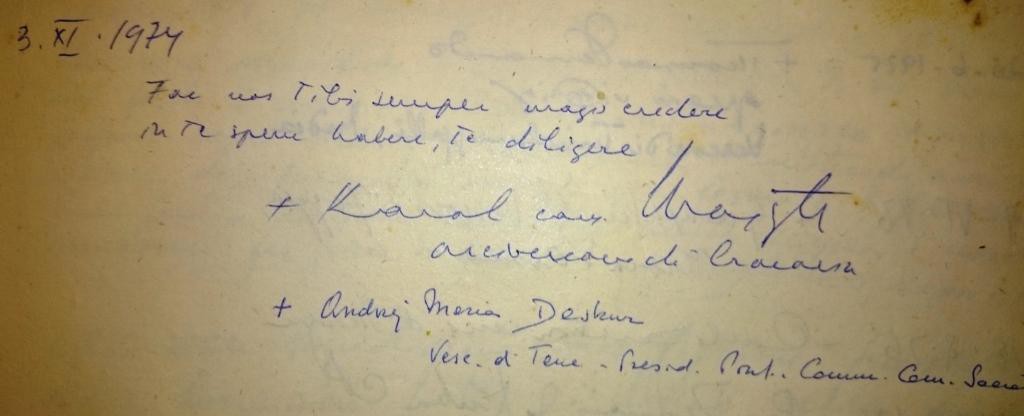 3. XI. 1974
Fac nos Tibi semper magis credere
in Te spem habere, Te diligere
+ Karol card. Wojtyła
arcivescovo di Cracovia
+ Andrzej Maria Deskur
Vesc. di Tene - Presid. Pont. Comm. Com.